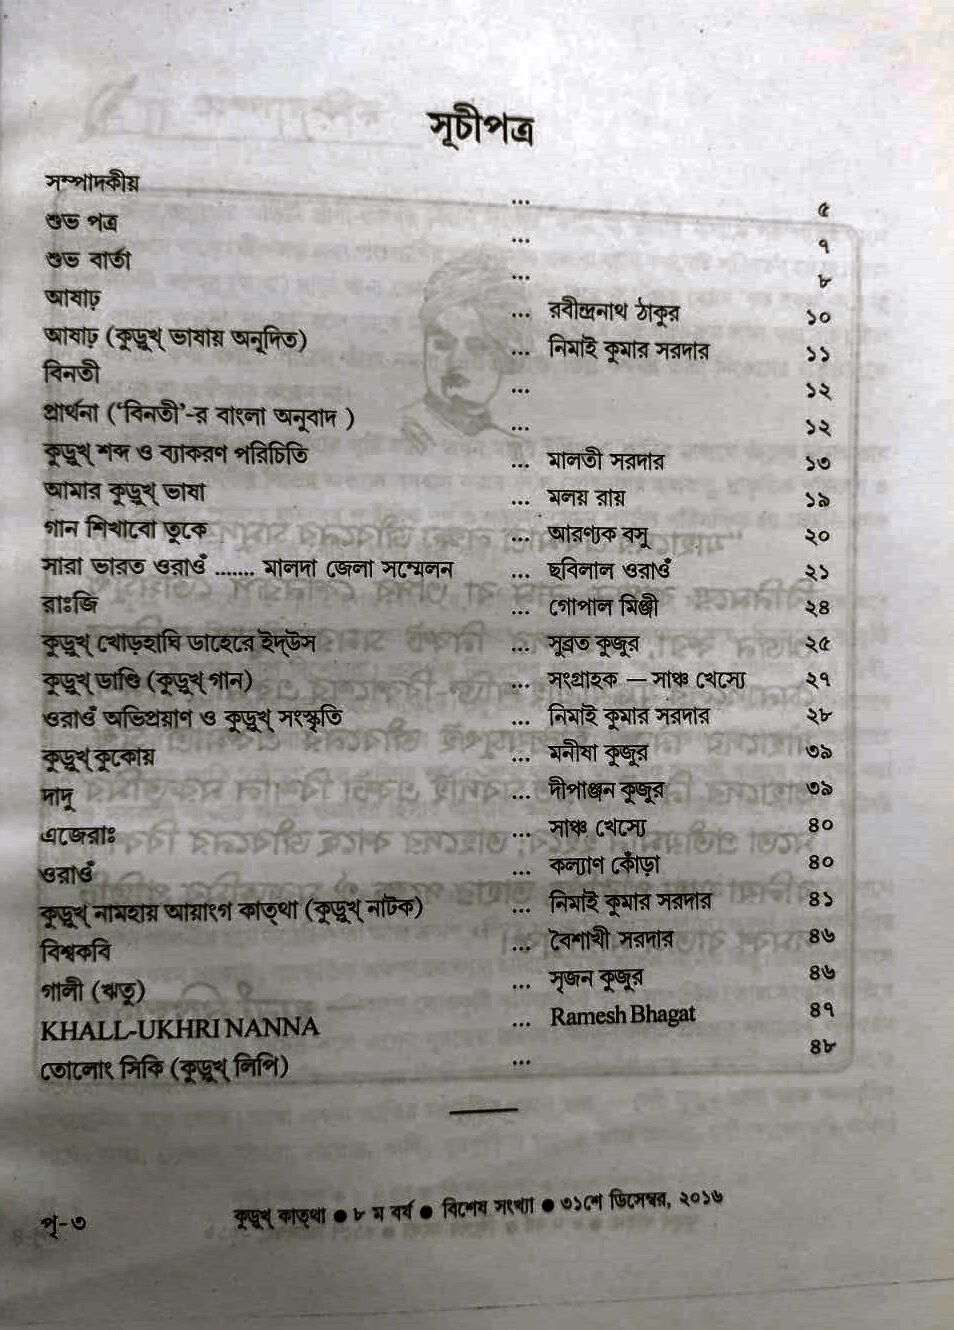 সূচীপত্র
সম্পাদকীয় ... ৫
শুভ পত্র ... ৭
শুভ বার্তা ... ৮
আষাঢ় ... রবীন্দ্রনাথ ঠাকুর ১০
আষাঢ় (কুড়ুখ্ ভাষায় অনূদিত) ... নিমাই কুমার সরদার ১১
বিনতী ... ১২
প্রার্থনা (‘বিনতী’-র বাংলা অনুবাদ ) ... ১২
কুড়ুখ্ শব্দ ও ব্যাকরণ পরিচিতি ... মালতী সরদার ১৩
আমার কুড়ুখ্ ভাষা ... মলয় রায় ১৯
গান শিখাবো তুকে ... আরণ্যক বসু ২০
সারা ভারত ওরাওঁ ....... মালদা জেলা সম্মেলন ... ছবিলাল ওরাওঁ ২১
রাঃজি ... গোপাল মিঞ্জী ২৪
কুড়ুখ্ খোড়হাঘি ডাহেরে ইদ্উস ... সুব্রত কুজুর ২৫
কুড়ুখ্ ডাণ্ডি (কুড়ুখ্ গান) ... সংগ্রাহক — সাঞ্চ খেস্যে ২৭
ওরাওঁ অভিপ্রয়াণ ও কুড়ুখ্ সংস্কৃতি ... নিমাই কুমার সরদার ২৮
কুড়ুখ্ কুকোয় ... মনীষা কুজুর ৩৯
দাদু ... দীপাঞ্জন কুজুর ৩৯
এজেরাঃ ... সাঞ্চ খেস্যে ৪০
ওরাওঁ ... কল্যাণ কোঁড়া ৪০
কুড়ুখ্ নামহায় আয়াংগ কাত্থা (কুড়ুখ্ নাটক) ... নিমাই কুমার সরদার ৪১
বিশ্বকবি ... বৈশাখী সরদার ৪৬
গালী (ঋতু) ... সৃজন কুজুর ৪৬
KHALL-UKHRI NANNA ... Ramesh Bhagat ৪৭
তোলোং সিকি (কুড়ুখ্ লিপি) ... ৪৮
পৃ-৩ কুড়ুখ্ কাত্থা ● ৮ ম বর্ষ ● বিশেষ সংখ্যা ● ৩১শে ডিসেম্বর, ২০১৬